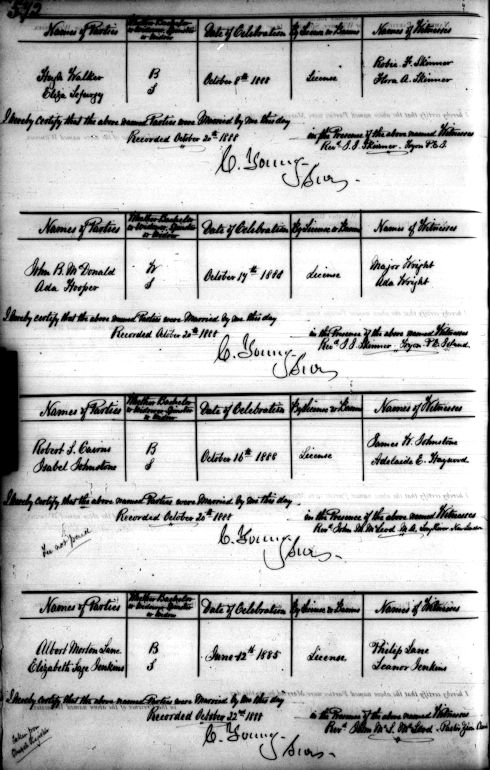 572
Names of Parties Whether Bachelor or Widower, Spinster or Widow Date of Celebration By License or Banns Names of Witnesses
Hugh Walker B October 8th 1888 License Robie F. Skinner
Eliza S Flora A. Skinner
I hereby certify that the above named Parties were Married by me this day in the Presence of the above named Witnesses
Recorded October 20th 1888 Revd J. J. Skinner Tryon P.E.I.
C. Young
Surr
Names of Parties Whether Bachelor or Widower, Spinster or Widow Date of Celebration By License or Banns Names of Witnesses
John B. McDonald W October 17th 1888 License Major Wright
Ada Hooper S Ada Wright
I hereby certify that the above named Parties were Married by me this day in the Presence of the above named Witnesses
Recorded October 20th 1888 Revd J. J. Skinner Tryon P.E. Island
C. Young
Surr
Names of Parties Whether Bachelor or Widower, Spinster or Widow Date of Celebration By License or Banns Names of Witnesses
Robert S. Cairns B October 16th 1888 License James H. Johnstone
Isabel Johnstone S Adelaide E. Haywood
I hereby certify that the above named Parties were Married by me this day in the Presence of the above named Witnesses
Recorded October 20th 1888 Revd John M. McLeod M.A.
Fee not paid
C. Young
Surr
Names of Parties Whether Bachelor or Widower, Spinster or Widow Date of Celebration By License or Banns Names of Witnesses
Albert Morton Lane B June 12th 1885 License Philip Lane
Elizabeth Jane Jenkins S Leanor Jenkins
I hereby certify that the above named Parties were Married by me this day in the Presence of the above named Witnesses
Recorded October 22nd 1888 Revd John M. McLeod Pastor Zion
taken from
Church Register
C. Young
Surr